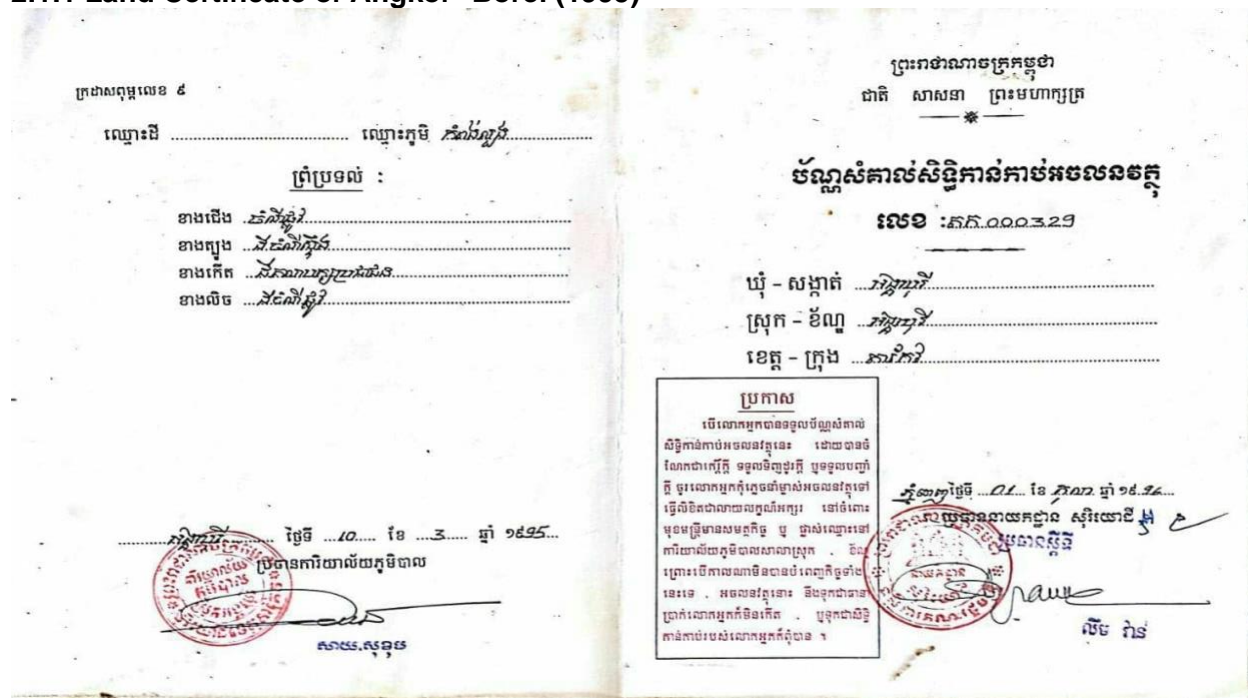 ក្រដាសពុម្ពលេខ ៩
ឈ្មោះដី ........ ឈ្មោះភូមិ កំពង់លួង
ព្រំប្រទល់ :
ខាងជើង ចំណីផ្លូវ
ខាងត្បូង ដីចំណីស្ទឹង
ខាងកើត
ខាងលិច ដីចំណីផ្លូវ
អង្គរបុរី ថ្ងៃទី 10 ខែ 3 ឆ្នាំ ១៩95
ប្រធានការិយាល័យភូមិបាល
សាយ.សុខុម
ព្រះរាជាណាចក្រកម្ពុជា
ជាតិ សាសនា ព្រះមហាក្សត្រ
ប័ណ្ណសំគាល់សិទ្ធិកាន់កាប់អចលនវត្ថុ
លេខ : តក 000329
ឃុំ - សង្កាត់ អង្គរបុរី
ស្រុក - ខ័ណ្ឌ អង្គរបុរី
ខេត្ត - ក្រុង តាកែវ
ប្រកាស
បើលោកអ្នកបានទទួលប័ណ្ណសំគាល់
សិទ្ធិកាន់កាប់អចលនវត្ថុនេះ ដោយបានចំ
ណែកជាកេរ្តិ៍ក្តី ទទួលទិញដូរក្តី ឬទទួលបញ្ចាំ
ក្តី ចូរលោកអ្នកកុំភ្លេចនាំម្ចាស់អចលនវត្ថុទៅ
ធ្វើលិខិតជាលាយលក្ខណ៍អក្សរ នៅចំពោះ
មុខមន្ត្រីមានសមត្ថកិច្ច ឬ ផ្លាស់ឈ្មោះនៅ
ការិយាល័យភូមិបាលសាលាស្រុក . ខ័ណ្ឌ
ព្រោះបើកាលណាមិនបានបំពេញកិច្ចទាំង
នេះទេ . អចលនវត្ថុនោះ នឹងទុកជាធានា
ប្រាក់លោកអ្នកក៏មិនកើត . ឬទុកជាសិទ្ធិ
កាន់កាប់របស់លោកអ្នកក៏ពុំបាន ។
ភ្នំពេញ ថ្ងៃទី 01 ខែ តុលា ឆ្នាំ ១៩.96
ប្រធាននាយកដ្ឋាន សុរិយោដី
ប្រធានស្តីទី
លឹច វ៉ាន់